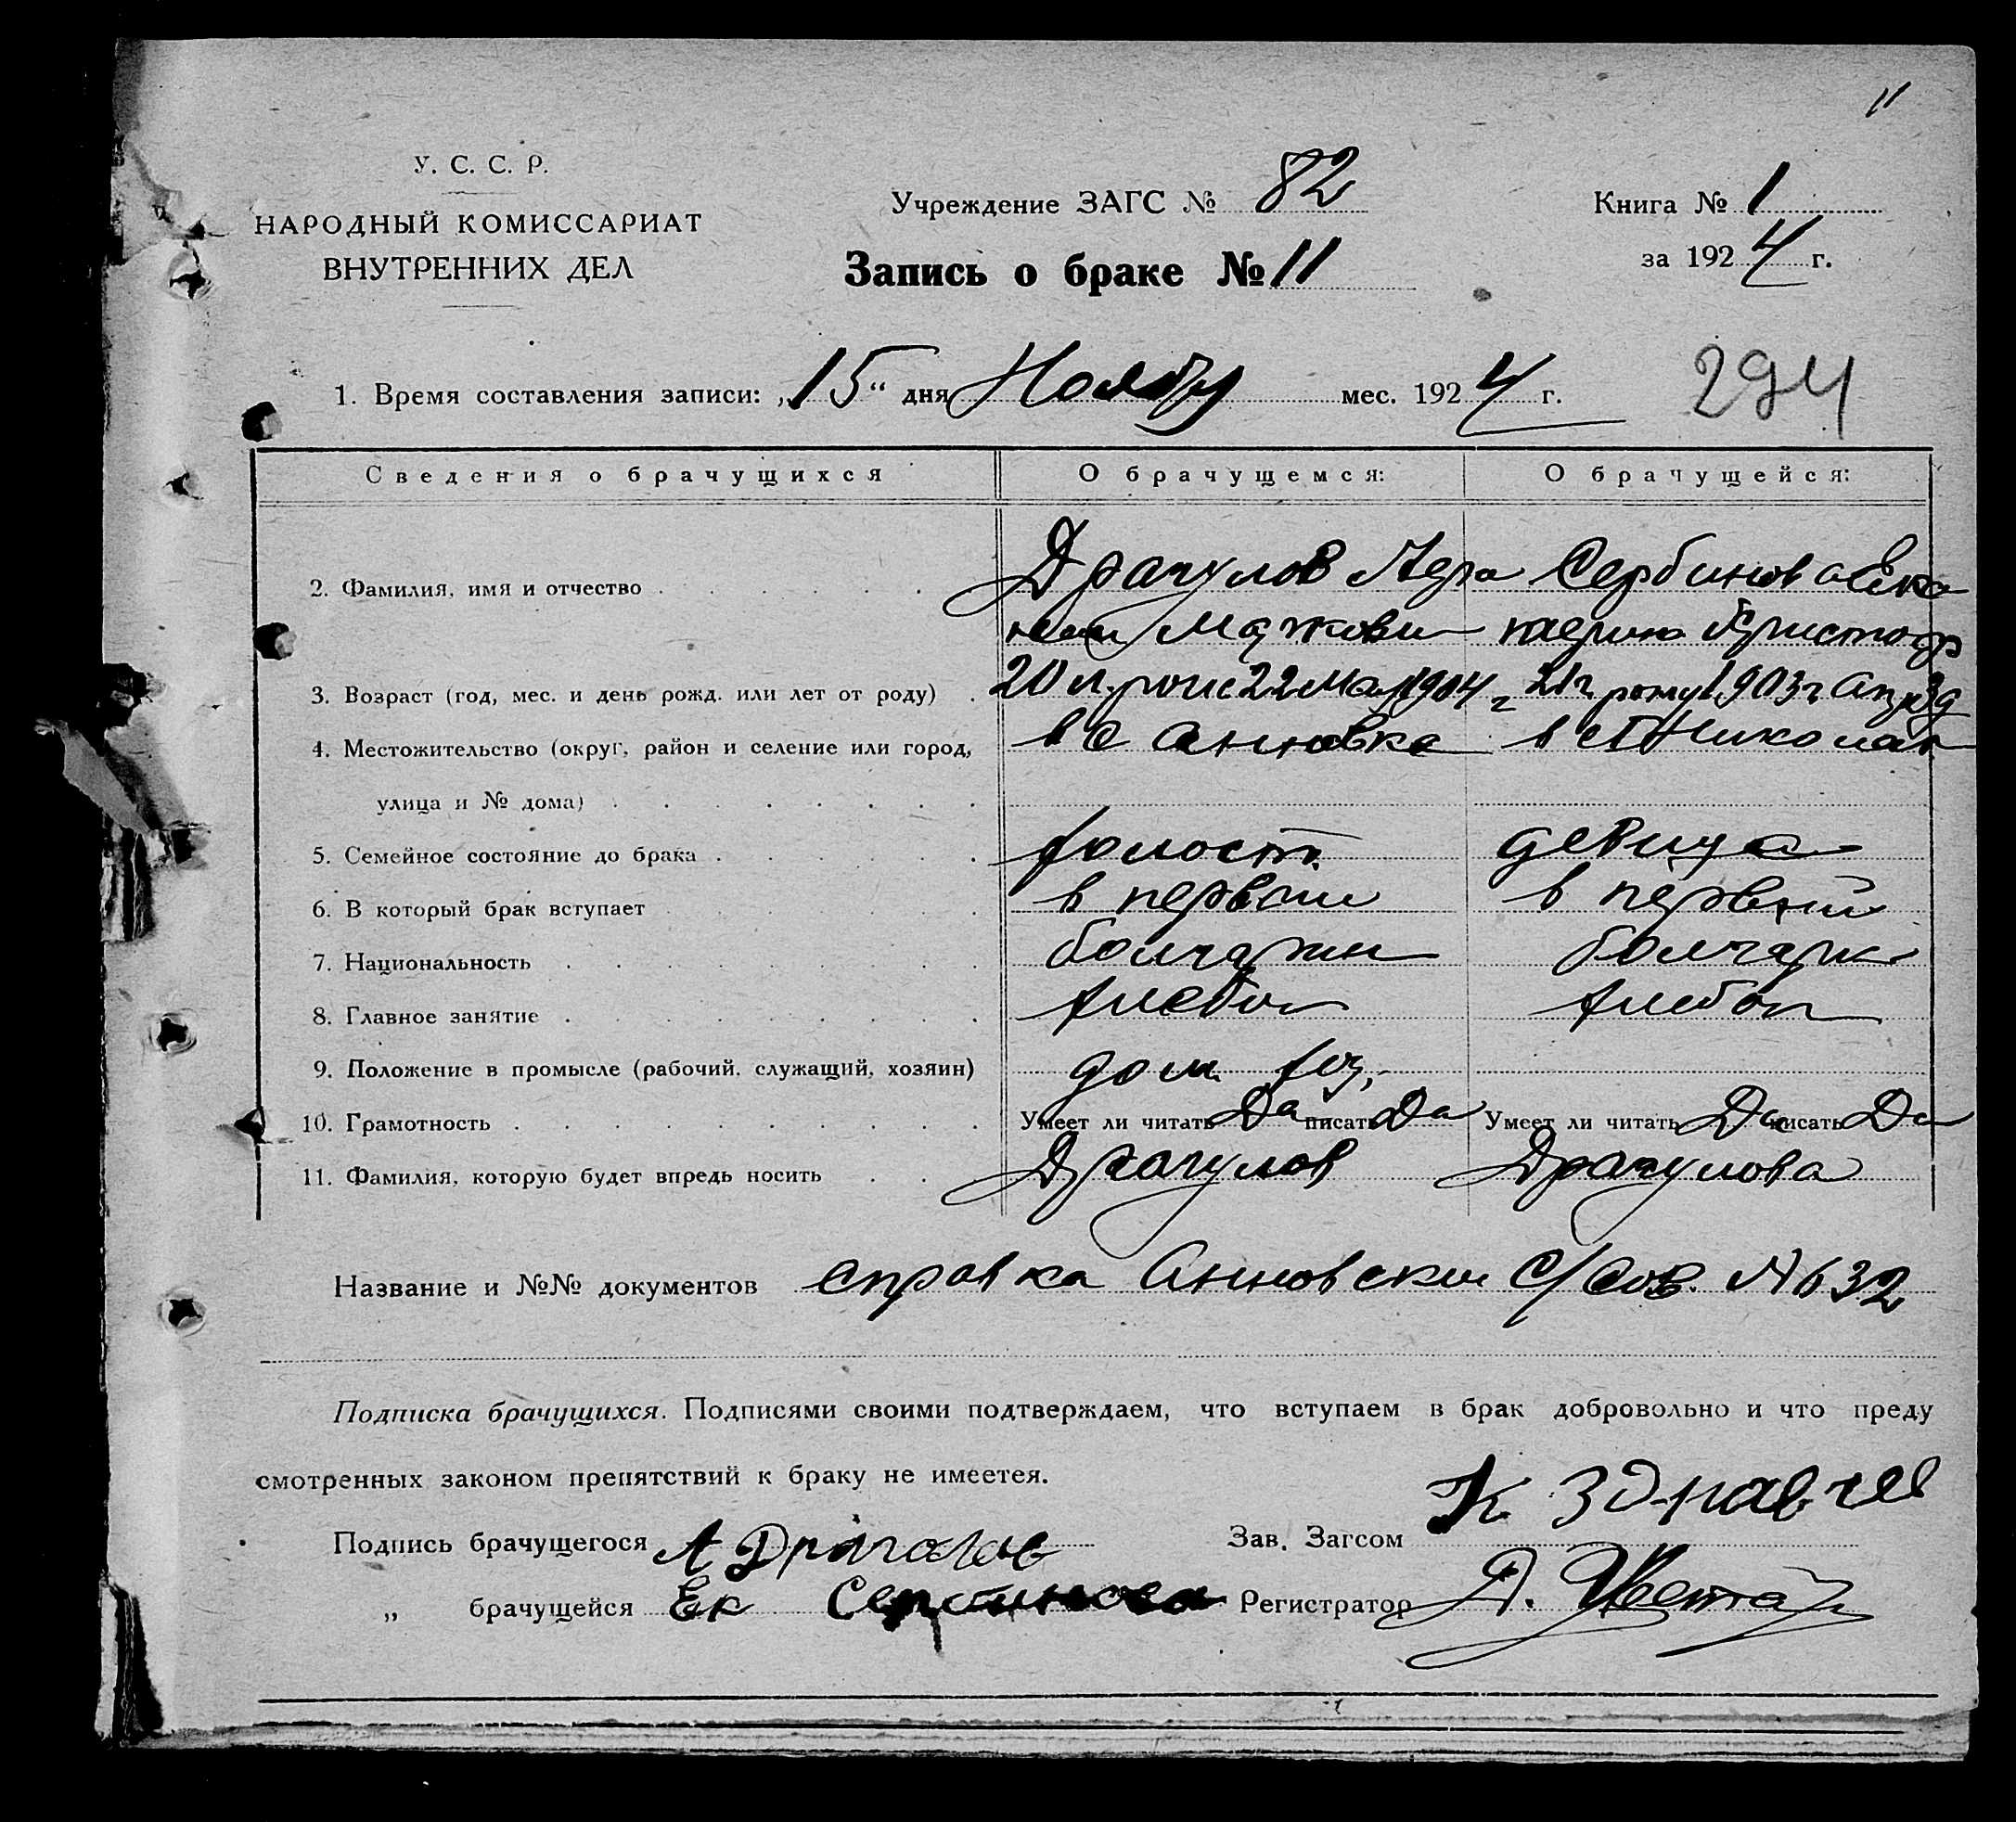 11
У. С. С. Р.
НАРОДНЫЙ КОМИССАРИАТ
ВНУТРЕННИХ ДЕЛ
Учреждение ЗАГС № 82
Запись о браке № 11
Книга № 1
за 1924 г.
1. Время составления записи: „15“ дня Ноябр мес. 1924 г.
294
Сведения о брачущихся О брачущемся: О брачущейся:
2. Фамилия, имя и отчество Драгулов Сербинова Ека
3. Возраст (год, мес. и день рожд. или лет от роду) 20 л. 22 мая 1904 г 21 г 1903 г
4. Местожительство (округ, район и селение или город, в с Анновка в
улица и № дома)
5. Семейное состояние до брака холост девица
6. В который брак вступает в первый в первый
7. Национальность болгарин болгарк
8. Главное занятие хлебоп хлебоп
9. Положение в промысле (рабочий, служащий, хозяин) дом. хоз.
10. Грамотность Умеет ли читать Да писать Да Умеет ли читать Да писать Да
11. Фамилия, которую будет впредь носить Драгулов Драгулова
Название и №№ документов справка Анновскии С/Сов. № 632
Подписка брачущихся. Подписями своими подтверждаем, что вступаем в брак добровольно и что преду
смотренных законом препятствий к браку не имеетея.
Подпись брачущегося А Драголов Зав. Загсом К
„ брачущейся Ек Сербинова Регистратор Д.